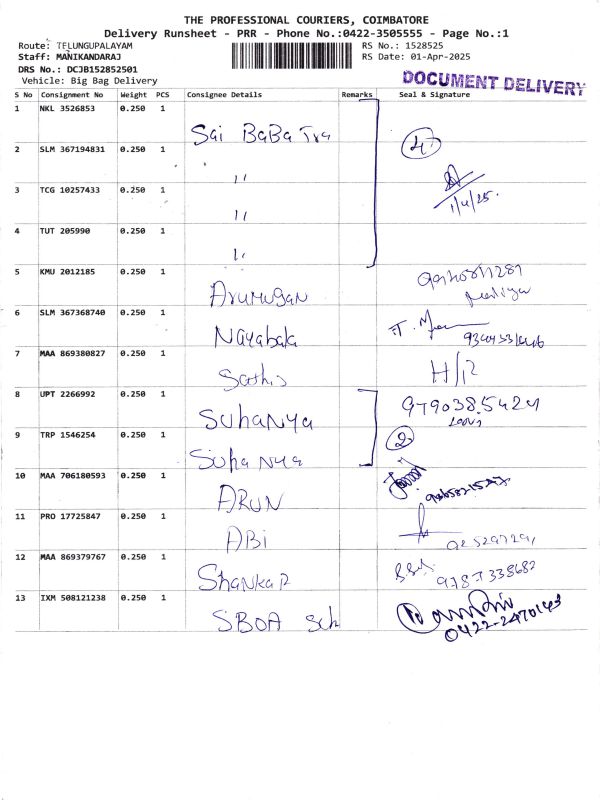 THE PROFESSIONAL COURIERS, COIMBATORE
Delivery Runsheet - PRR - Phone No.:0422-3505555 - Page No.:1
Route: TELUNGUPALAYAM RS No.: 1528525
Staff: MANIKANDARAJ RS Date: 01-Apr-2025
DRS No.: DCJB152852501
Vehicle: Big Bag Delivery DOCUMENT DELIVERY
S No Consignment No Weight PCS Consignee Details Remarks Seal & Signature
1 NKL 3526853 0.250 1 Sai BaBa Tra
2 SLM 367194831 0.250 1 " 4
3 TCG 10257433 0.250 1 " 1/4/25.
4 TUT 205990 0.250 1 "
5 KMU 2012185 0.250 1 Arumugan
6 SLM 367368740 0.250 1 Nayabala
7 MAA 869380827 0.250 1 Sathis H/R
8 UPT 2266992 0.250 1 SuhaNya
9 TRP 1546254 0.250 1 Suha Nya 2
10 MAA 706180593 0.250 1 ARUN
11 PRO 17725847 0.250 1 ABi
12 MAA 869379767 0.250 1 Shankar
13 IXM 508121238 0.250 1 SBOA Sch
0422-2470143